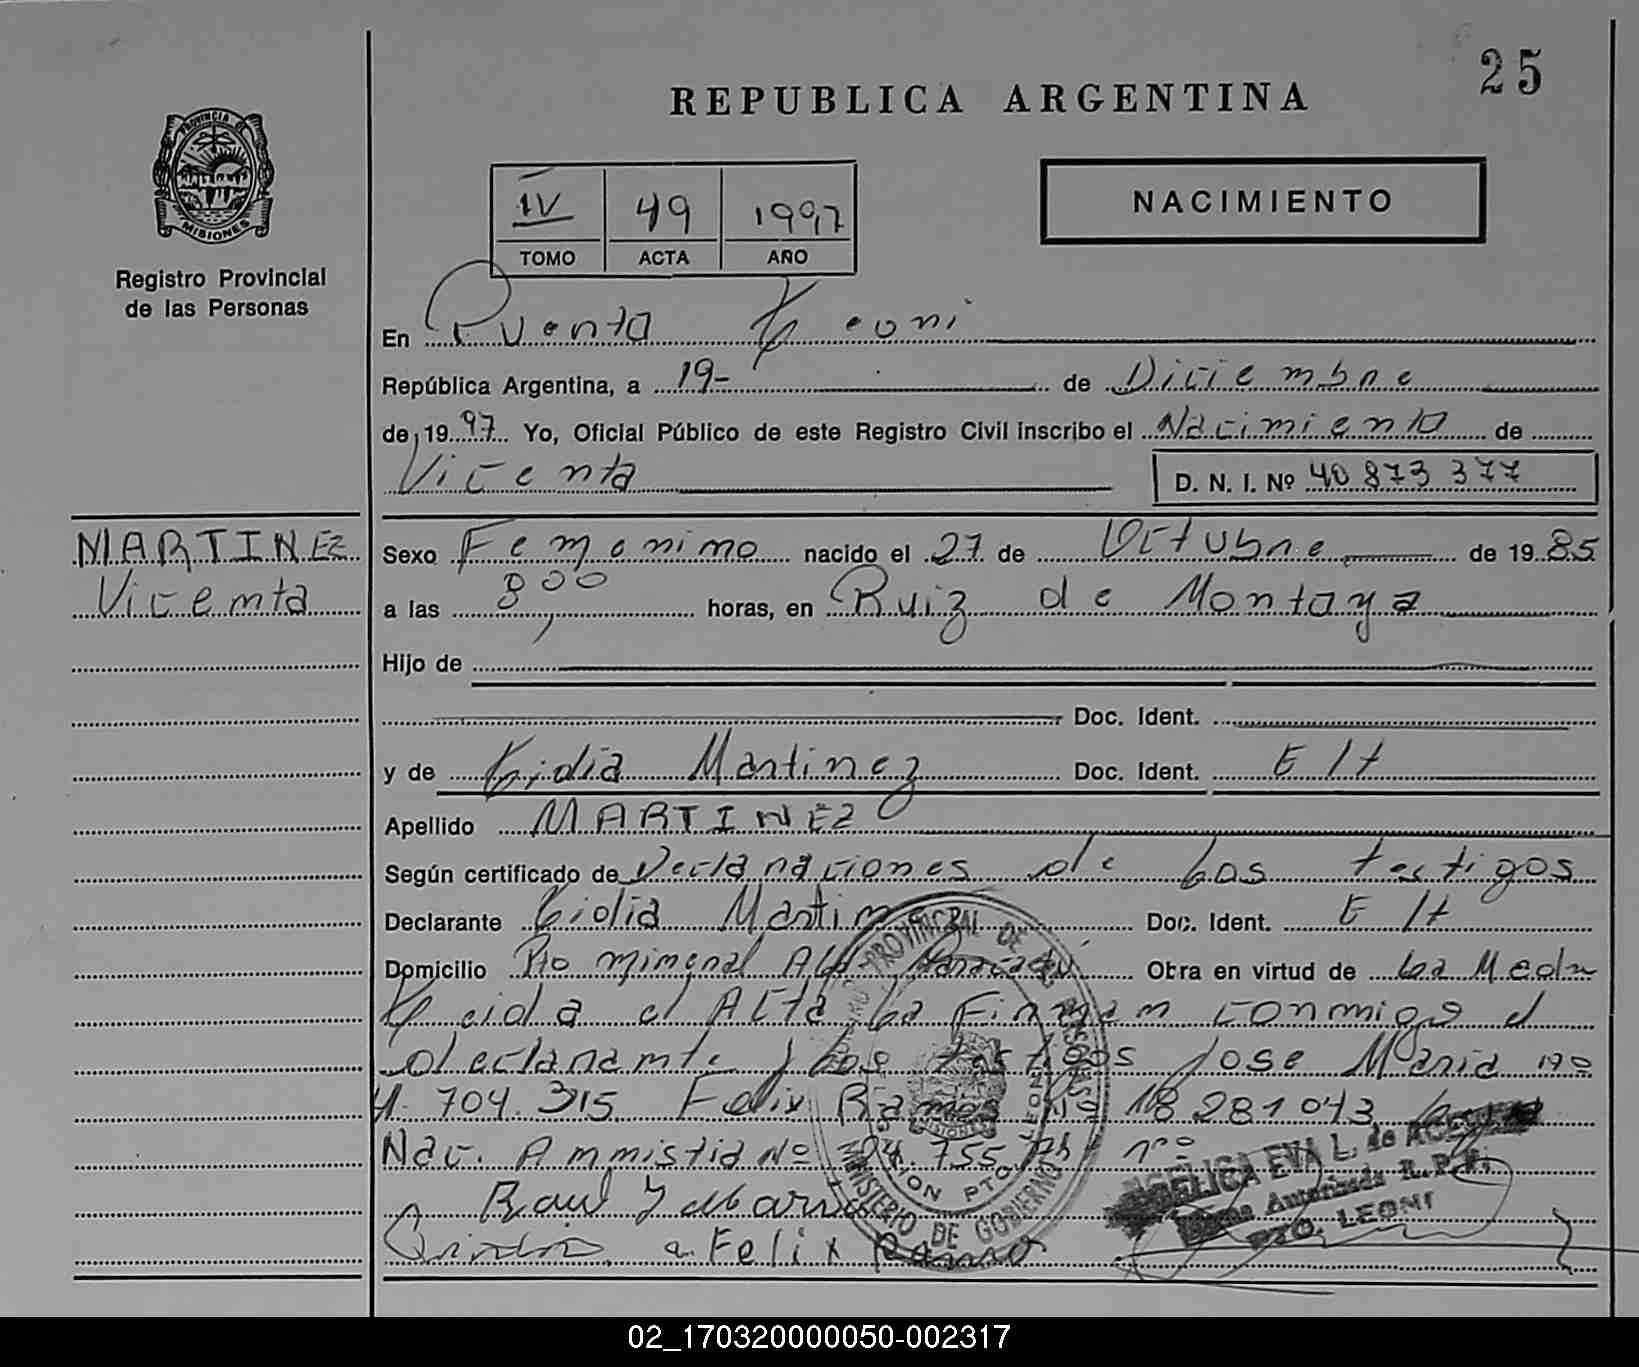 25
REPUBLICA ARGENTINA
PROVINCIA DE
MISIONES
Registro Provincial
de las Personas
IV 49 1997
TOMO ACTA AÑO
NACIMIENTO
En Puerto Leoni
República Argentina, a 19- de Diciembre
de 1997 Yo, Oficial Público de este Registro Civil inscribo el Nacimiento de
Vicenta D. N. I. Nº 40 873 377
MARTINEZ
Vicenta
Sexo Femenino nacido el 27 de Octubre de 1985
a las 8,00 horas, en Ruiz de Montoya
Hijo de
Doc. Ident.
y de Lidia Martinez Doc. Ident.
Apellido MARTINEZ
Según certificado de Declaraciones de Los testigos
Declarante Lidia Martinez Doc. Ident.
Domicilio Pto mineral Obra en virtud de La Madre
Leida el Acta La Firman conmigo el
declarante y Los testigos Jose Maria nº
4.704.315 Felix Ramos Nº 18 281 043
Nac. Ammistia Nº
Raul
a Felix Ramos
MINISTERIO DE GOBIERNO
MISIONES
ANGELICA EVA L. de
Autorizada R. P. P.
PTO. LEONI
02_170320000050-002317